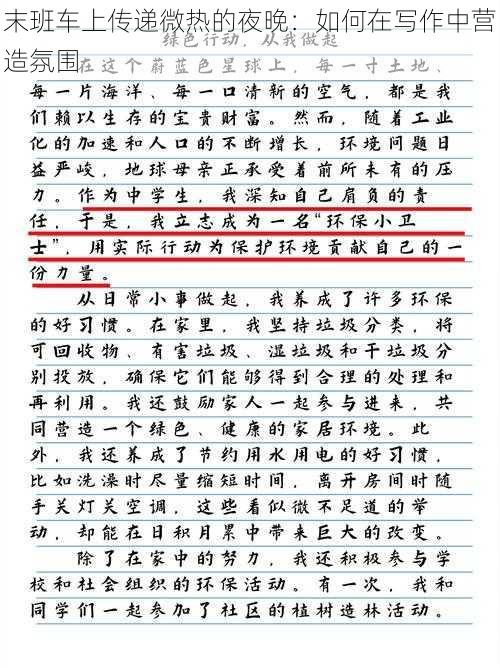 末班车上传递微热的夜晚：如何在写作中营
造氛围
绿色行动，从我做起
在这个蔚蓝色星球上，每一寸土地、
每一片海洋、每一口清新的空气，都是我
们赖以生存的宝贵财富。然而，随着工业
化的加速和人口的不断增长，环境问题日
益严峻，地球母亲正承受着前所未有的压
力。作为中学生，我深知自己肩负的责
任，于是，我立志成为一名“环保小卫
士”，用实际行动为保护环境贡献自己的一
份力量。
从日常小事做起，我养成了许多环保
的好习惯。在家里，我坚持垃圾分类，将
可回收物、有害垃圾、湿垃圾和干垃圾分
别投放，确保它们能够得到合理的处理和
再利用。我还鼓励家人一起参与进来，共
同营造一个绿色、健康的家居环境。此
外，我还养成了节约用水用电的好习惯，
比如洗澡时尽量缩短时间，离开房间时随
手关灯关空调，这些看似微不足道的举
动，却能在日积月累中带来巨大的改变。
除了在家中的努力，我还积极参与学
校和社会组织的环保活动。有一次，我和
同学们一起参加了社区的植树造林活动。